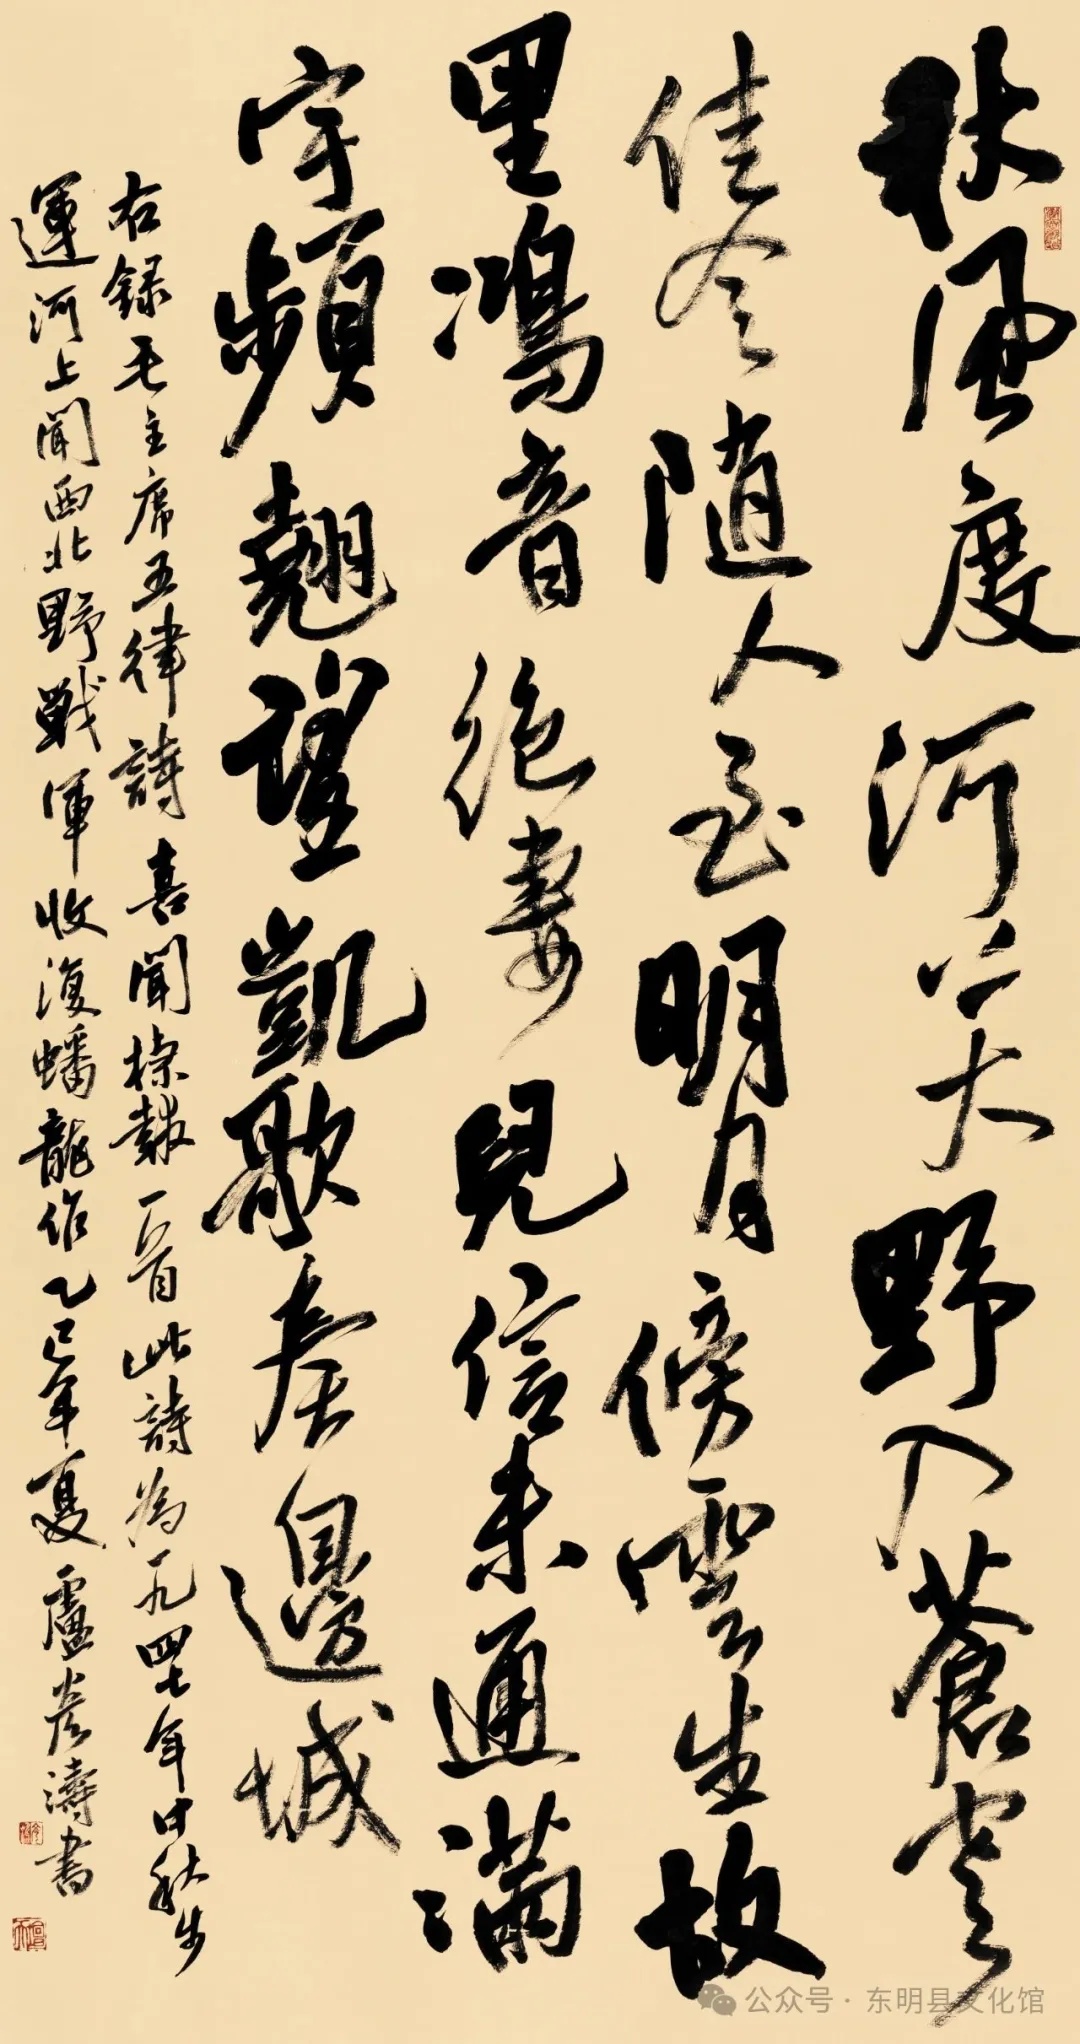 秋風度河上大野入蒼穹
佳令随人至明月傍雲生故
里鴻音絶妻兒信未通滿
宇頻翹望凱歌奏邊城
右録毛主席五律詩喜聞捷報一首此詩為一九四七年中秋步
運河上聞西北野戰軍收復蟠龍作乙巳年夏盧彦濤書
公众号·东明县文化馆